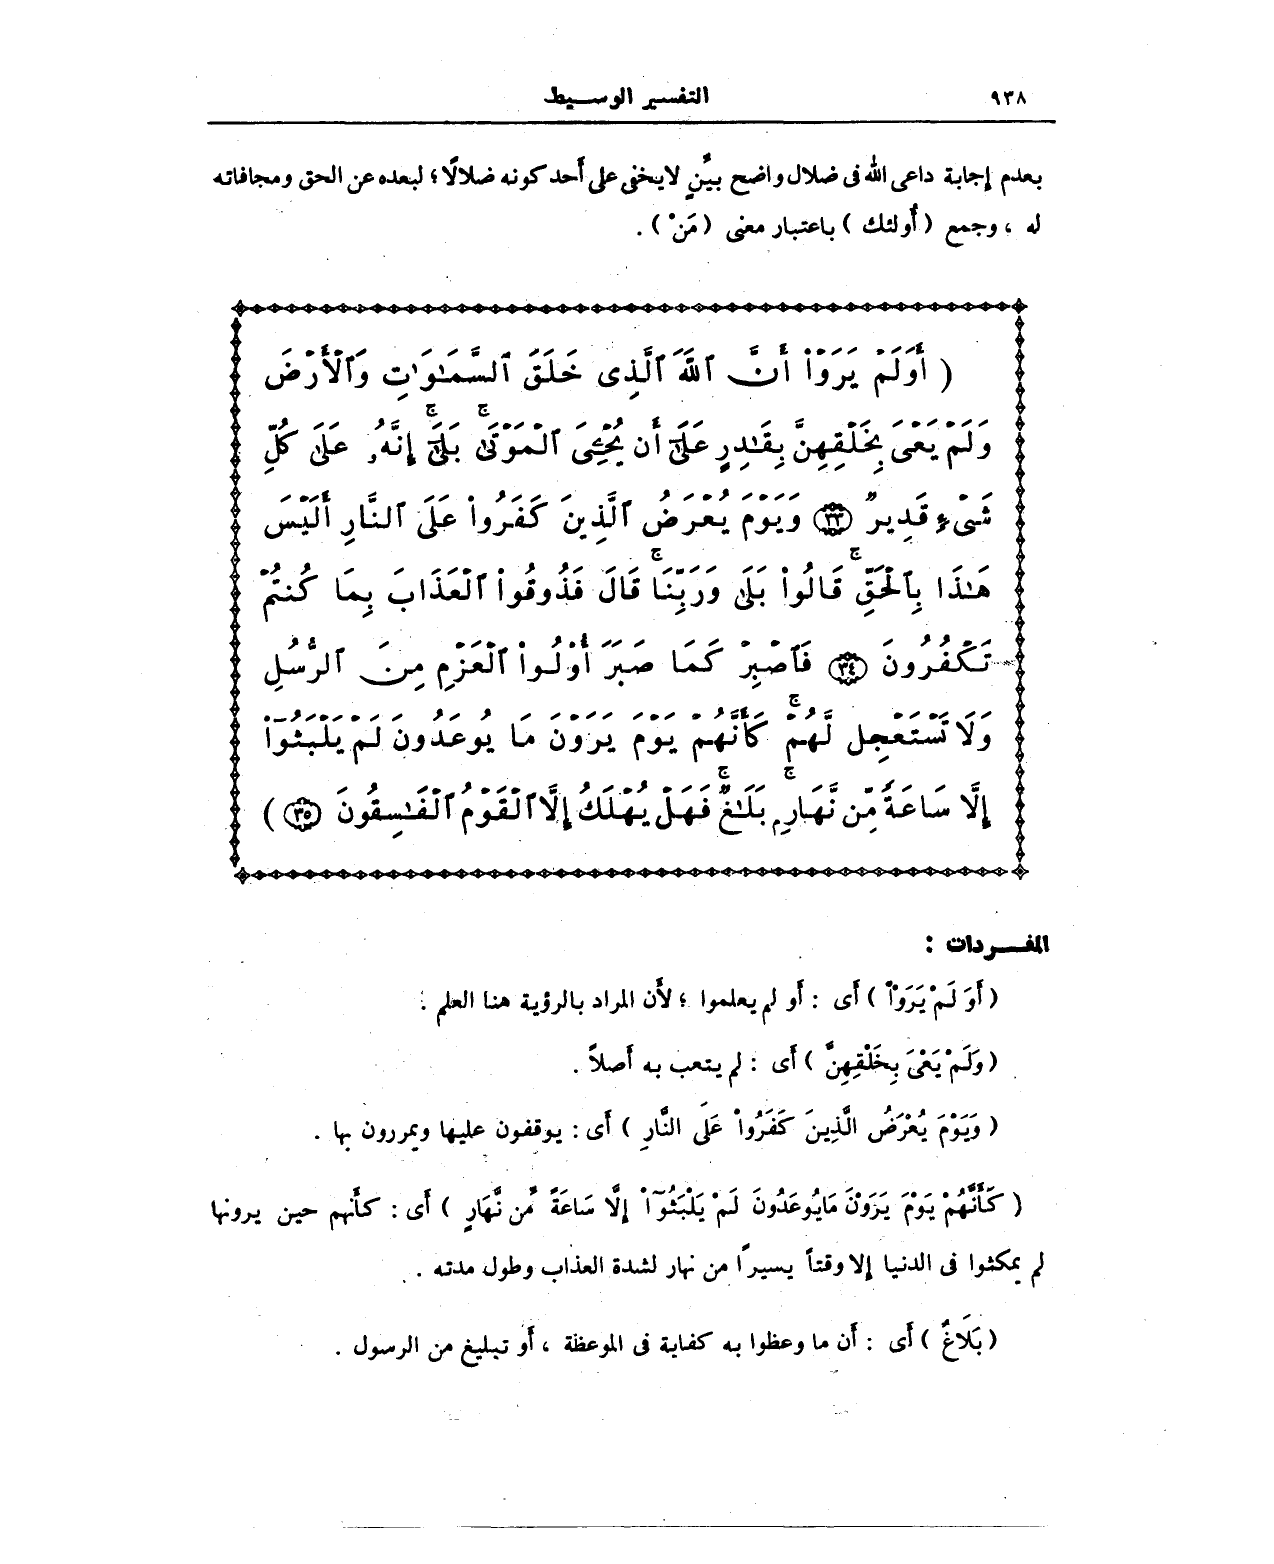 ٩٣٨
التفسير الوسيط
بعدم إجابة داعى الله فى ضلال واضح بيِّنٍ لايخفى على أحد كونه ضلالًا؛ لبعده عن الحق ومجافاته
له ، وجمع ( أُولئك ) باعتبار معنى ( مَنْ ) .
( أَوَلَمْ يَرَوْا۟ أَنَّ ٱللَّهَ ٱلَّذِى خَلَقَ ٱلسَّمَـٰوَٰتِ وَٱلْأَرْضَ
وَلَمْ يَعْىَ بِخَلْقِهِنَّ بِقَـٰدِرٍ عَلَىٰٓ أَن يُحْـِۧىَ ٱلْمَوْتَىٰ ۚ بَلَىٰٓ ۚ إِنَّهُۥ عَلَىٰ كُلِّ
شَىْءٍ قَدِيرٌ ﴿٣٣﴾ وَيَوْمَ يُعْرَضُ ٱلَّذِينَ كَفَرُوا۟ عَلَى ٱلنَّارِ أَلَيْسَ
هَـٰذَا بِٱلْحَقِّ ۖ قَالُوا۟ بَلَىٰ وَرَبِّنَا ۚ قَالَ فَذُوقُوا۟ ٱلْعَذَابَ بِمَا كُنتُمْ
تَكْفُرُونَ ﴿٣٤﴾ فَٱصْبِرْ كَمَا صَبَرَ أُو۟لُوا۟ ٱلْعَزْمِ مِنَ ٱلرُّسُلِ
وَلَا تَسْتَعْجِل لَّهُمْ ۚ كَأَنَّهُمْ يَوْمَ يَرَوْنَ مَا يُوعَدُونَ لَمْ يَلْبَثُوٓا۟
إِلَّا سَاعَةً مِّن نَّهَارٍۭ ۚ بَلَـٰغٌ ۚ فَهَلْ يُهْلَكُ إِلَّا ٱلْقَوْمُ ٱلْفَـٰسِقُونَ ﴿٣٥﴾ )
المفـــردات :
( أَوَ لَمْ يَرَوْا ) أَى : أَو لم يعلموا ؛ لأَن المراد بالرؤية هنا العلم .
( وَلَمْ يَعْىَ بِخَلْقِهِنَّ ) أَى : لم يتعب به أَصلاً .
( وَيَوْمَ يُعْرَضُ الَّذِينَ كَفَرُوا عَلَى النَّارِ ) أَى : يوقفون عليها ويمررون بها .
( كَأَنَّهُمْ يَوْمَ يَرَوْنَ مَايُوعَدُونَ لَمْ يَلْبَثُوٓا إِلَّا سَاعَةً مِّن نَّهَارٍ ) أَى : كأَنهم حين يرونها
لم يمكثوا فى الدنيا إلا وقتاً يسيرًا من نهار لشدة العذاب وطول مدته .
( بَلَاغٌ ) أَى : أَن ما وعظوا به كفاية فى الموعظة ، أَو تبليغ من الرسول .